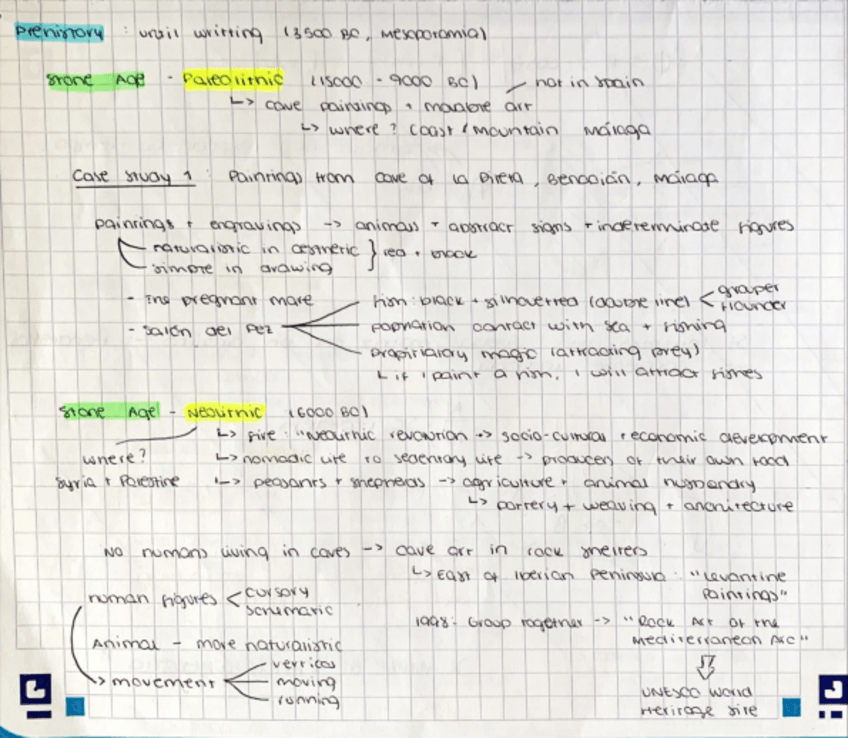 Prehistory : until writting (3500 BC, Mesopotamia)
Stone Age - Paleolithic (15000 - 9000 BC) not in Spain
↳ cave paintings + mobiliare art
↳ where? Coast / mountain Málaga
Case study 1: Paintings from cave of la Pileta, Benaoján, Málaga
paintings + engravings -> animals + abstract signs + indeterminate figures
naturalistic in aesthetic } red + black
simple in drawing
- The pregnant mare
- Salón del Pez
fish: black + silhouetted (double line) < grouper
flounder
population contact with sea + fishing
propitiatory magic (attracting prey)
↳ if I paint a fish, I will attract fishes
Stone Age - Neolithic (6000 BC)
↳ five: "Neolithic revolution -> socio-cultural + economic development
where? ↳ nomadic life to sedentary life -> producers of their own food
Syria + Palestine ↳ peasants + shepherds -> agriculture + animal husbandry
↳ pottery + weaving + architecture
No humans living in caves -> cave art in rock shelters
↳ East of Iberian Peninsula: "Levantine
Paintings"
human figures < cursory
schematic
1998: Group together -> "Rock Art of the
Mediterranean Arc"
UNESCO World
Heritage site
Animal - more naturalistic
movement
vertical
moving
running